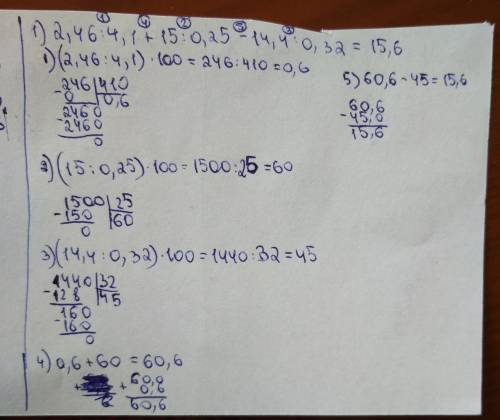 ① ④ ② ⑤ ③
1) 2,46 : 4,1 + 15 : 0,25 - 14,4 : 0,32 = 15,6
1) (2,46 : 4,1) · 100 = 246 : 410 = 0,6
246 | 410
- 0 | 0,6
2460
- 2460
0
2) (15 : 0,25) · 100 = 1500 : 25 = 60
1500 | 25
- 150 | 60
0
3) (14,4 : 0,32) · 100 = 1440 : 32 = 45
1440 | 32
- 128 | 45
160
- 160
0
4) 0,6 + 60 = 60,6
60,0
+ 0,6
60,6
5) 60,6 - 45 = 15,6
60,6
- 45,0
15,6